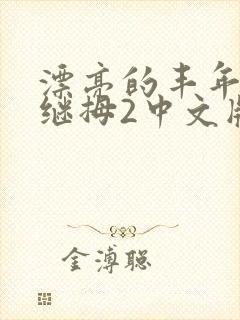 漂亮的丰年
继拇2中文版
金溥聪